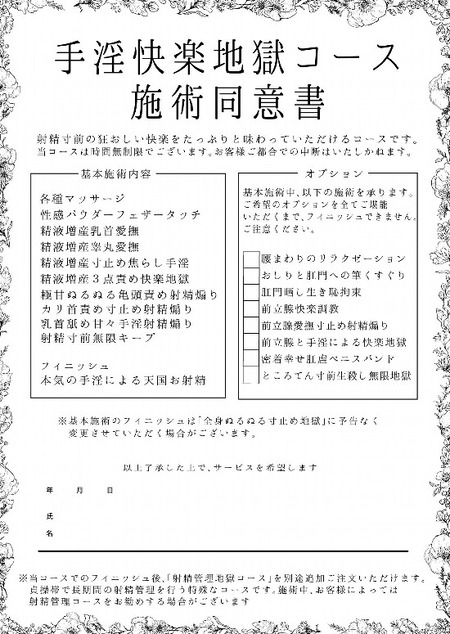 手淫快楽地獄コース
施術同意書
射精寸前の狂おしい快楽をたっぷりと味わっていただけるコースです。
当コースは時間無制限でございます。お客様ご都合での中断はいたしかねます。
基本施術内容
各種マッサージ
性感パウダーフェザータッチ
精液増産乳首愛撫
精液増産睾丸愛撫
精液増産寸止め焦らし手淫
精液増産３点責め快楽地獄
極甘ぬるぬる亀頭責め射精煽り
カリ首責め寸止め射精煽り
乳首舐め甘々手淫射精煽り
射精寸前無限キープ
フィニッシュ
本気の手淫による天国お射精
オプション
基本施術中、以下の施術を承ります。
ご希望のオプションを全てご堪能
いただくまで、フィニッシュできません。
ご注意ください。
腰まわりのリラクゼーション
おしりと肛門への筆くすぐり
肛門晒し生き恥拘束
前立腺快楽調教
前立腺愛撫寸止め射精煽り
前立腺と手淫による快楽地獄
密着幸せ肛虐ペニスバンド
ところてん寸前生殺し無限地獄
※基本施術のフィニッシュは「全身ぬるぬる寸止め地獄」に予告なく
変更させていただく場合がございます。
以上了承した上で、サービスを希望します
年 月 日
氏
名
※当コースでのフィニッシュ後、「射精管理地獄コース」を別途追加ご注文いただけます。
貞操帯で長期間の射精管理を行う特殊なコースです。施術中、お客様によっては
射精管理コースをお勧めする場合がございます